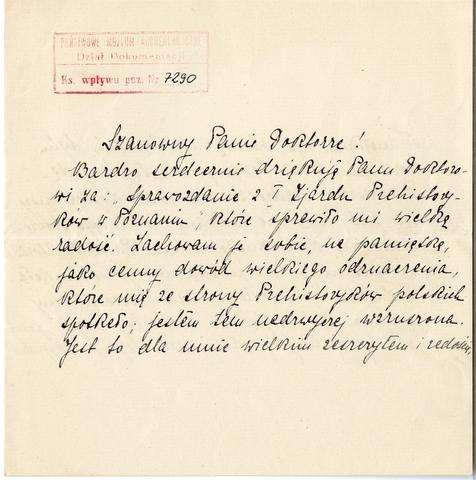 PAŃSTWOWE MUZEUM ARCHEOLOGICZNE
Dział Dokumentacji
Ks. wpływu poz. Nr 7290
Szanowny Panie Doktorze!
Bardzo serdecznie dziękuję Panu Doktoro-
wi za: "Sprawozdanie z I Zjazdu Prehistory-
ków w Poznaniu", które sprawiło mi wielką
radość. Zachowam je sobie, na pamiątkę,
jako cenny dowód wielkiego odznaczenia,
które mię ze strony Prehistoryków polskich
spotkało; jestem tem nadzwyczaj wzruszona.
Jest to dla mnie wielkim zaszczytem i radością,